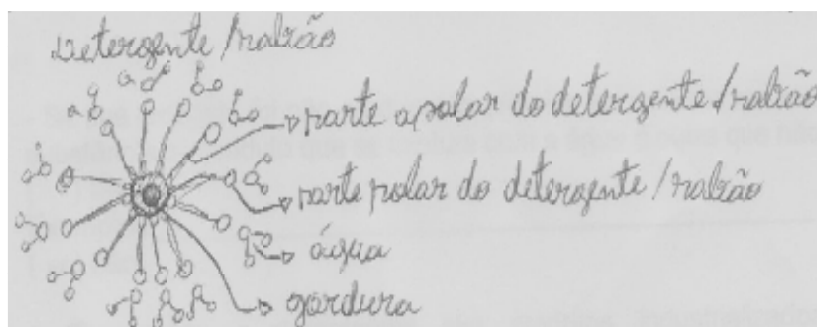 Detergente/sabão
parte apolar do detergente/sabão
parte polar do detergente/sabão
água
gordura